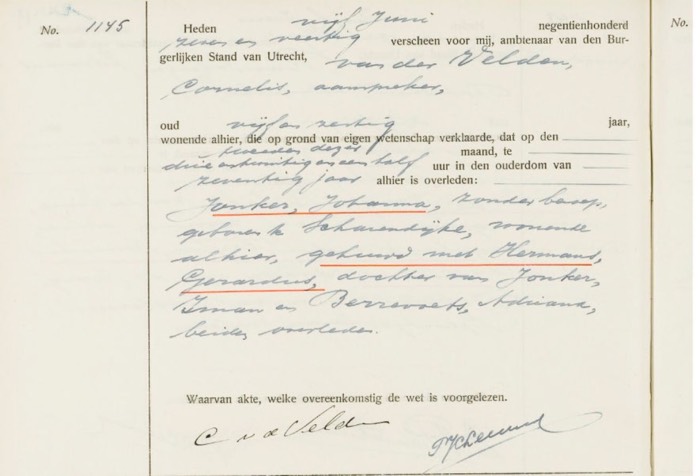 No. 1145
Heden vijf Juni negentienhonderd
zeven en veertig verscheen voor mij, ambtenaar van den Bur-
gerlijken Stand van Utrecht, van der Velden,
Cornelis, aanspreker,
oud vijf en zestig jaar,
wonende alhier, die op grond van eigen wetenschap verklaarde, dat op den
tweeden dezer maand, te
drie en twintig en een half uur in den ouderdom van
zeventig jaar alhier is overleden:
Jonker, Johanna, zonder beroep,
geboren te Scharendijke, wonende
alhier, gehuwd met Hermans,
Gerardus, dochter van Jonker,
Iman en Berrevoets, Adriana,
beiden overleden.
Waarvan akte, welke overeenkomstig de wet is voorgelezen.
C v d Velden
No.